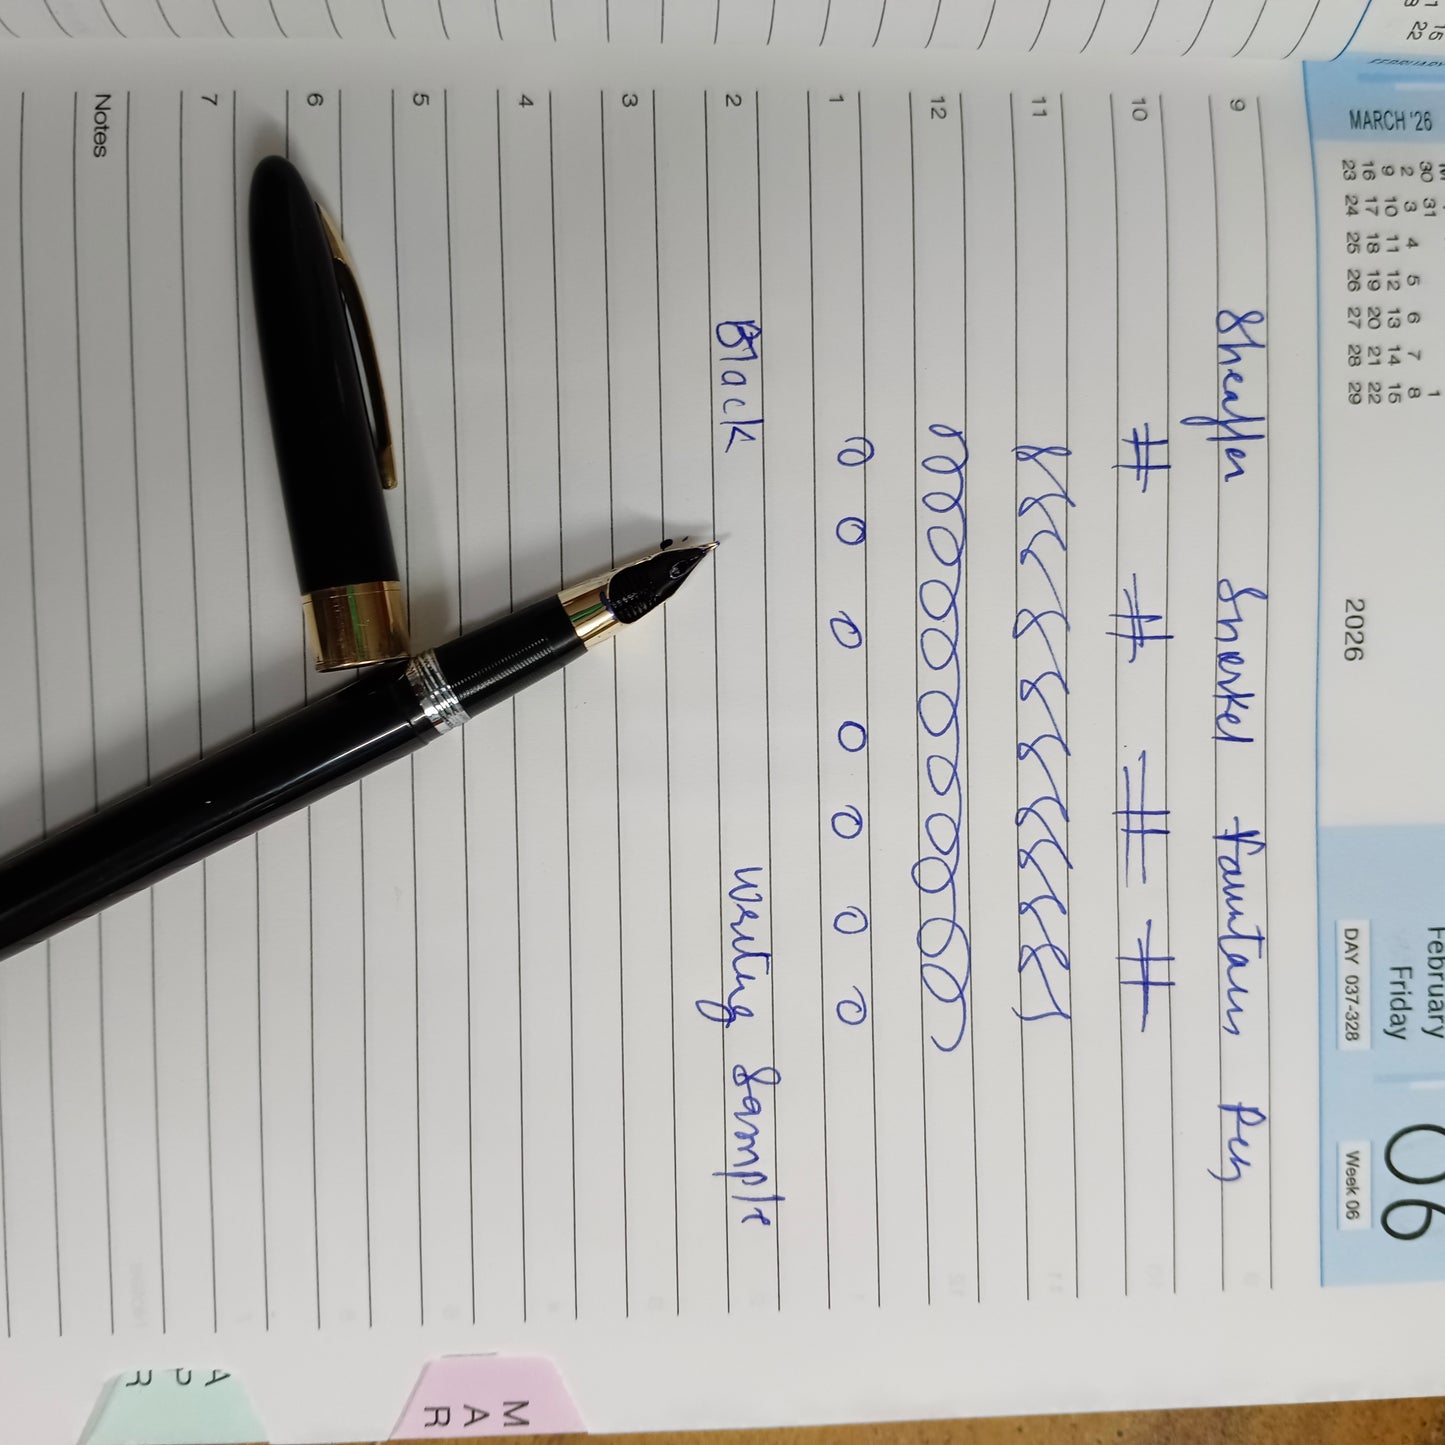 MARCH '26
30 31 1
2 3 4 5 6 7 8
9 10 11 12 13 14 15
16 17 18 19 20 21 22
23 24 25 26 27 28 29
2026
February
Friday
06
DAY 037-328
Week 06
9 Sheaffer Snorkel Fountain Pen
10 # # # #
11
12
1
2 Black Writing Sample
3
4
5
6
7
Notes
MAR
APR
15
22